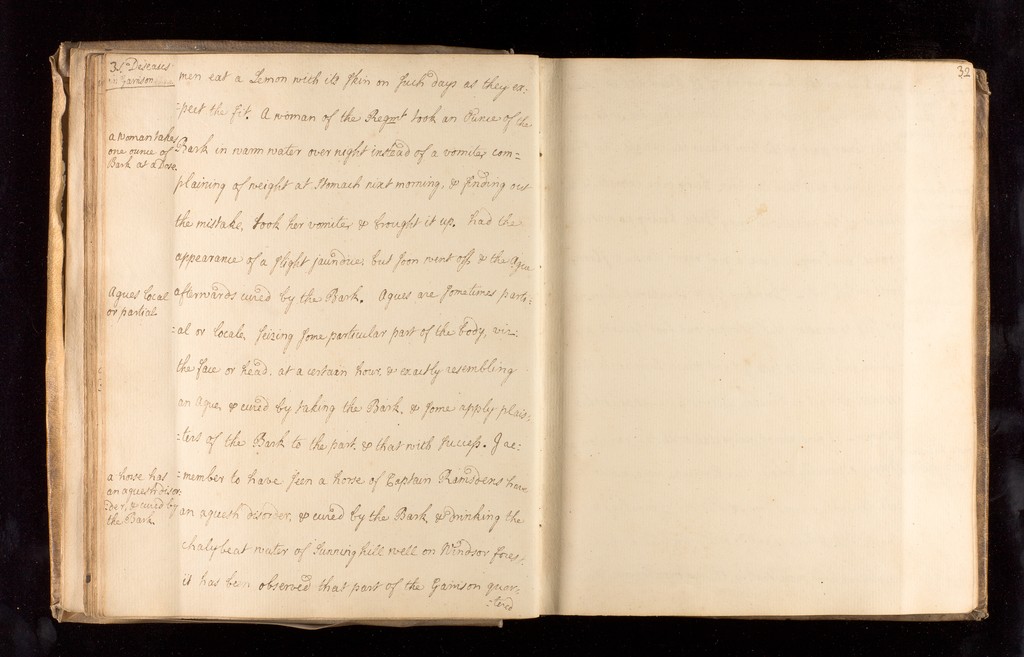 31. Deseases
in Garrison
men eat a Lemon with its Skin on such days as they ex-
:pect the fit. A woman of the Regmt took an Ounce of the
a woman takes
one ounce of
Bark at a Dose
Bark in warm water over night instead of a vomiter, com=
plaining of weight at Stomach next morning, & finding out
the mistake, took her vomiter & brought it up. had the
appearance of a slight jaundice, but soon went off & the Ague
Agues local
or partial
afterwards cured by the Bark. Agues are sometimes parti:
:al or locale, seizing some particular part of the body, viz:
the face or head, at a certain hour, & exactly resembling
an Ague, & cured by taking the Bark, & some apply plais:
:ters of the Bark to the part, & that with success. I re:
a horse has
an agueish disor:
:der, & cured by
the Bark.
:member to have seen a horse of Captain Ramsdens have
an agueish disorder, & cured by the Bark, & drinking the
chalybeat water of Sunning hill well on Windsor forest,
it has been observed that part of the Garrison quar:
:tered
32